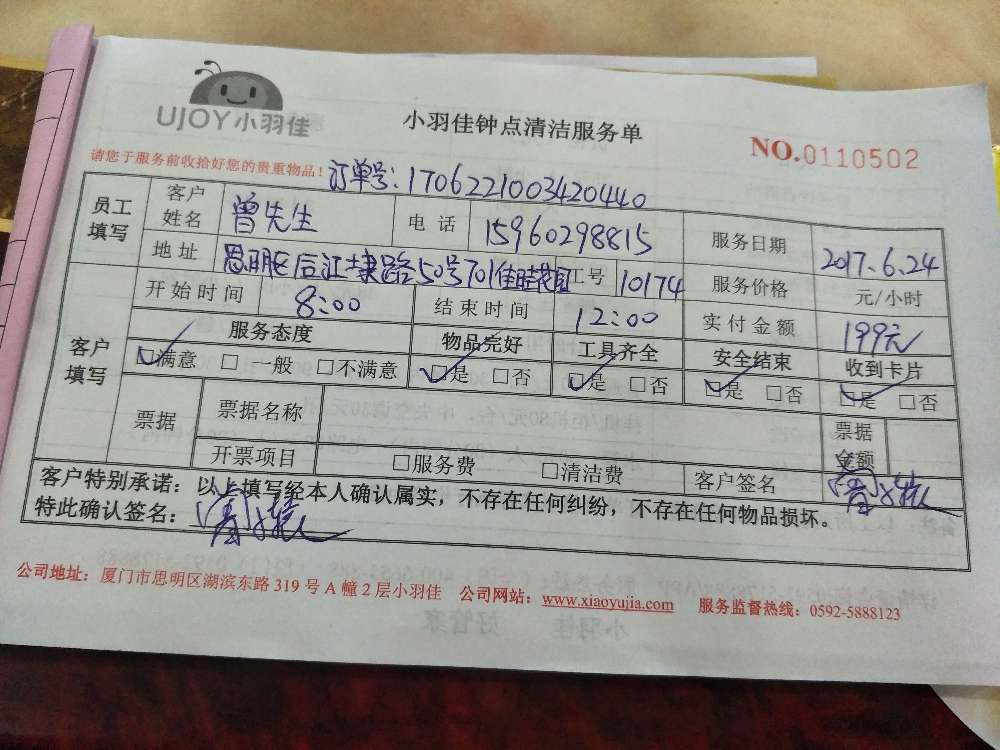 UJOY小羽佳
小羽佳钟点清洁服务单
NO.0110502
请您于服务前收拾好您的贵重物品！
订单号：1706221003420440
员工填写 客户姓名 曾先生 电话 15960298815 服务日期 2017.6.24
地址 思明区后江埭路50号701佳 花园 工号 10174 服务价格 元/小时
开始时间 8:00 结束时间 12:00 实付金额 199元
客户填写 服务态度 物品完好 工具齐全 安全结束 收到卡片
☑满意 □一般 □不满意 ☑是 □否 ☑是 □否 ☑是 □否 ☑是 □否
票据 票据名称 票据金额
开票项目 □服务费 □清洁费 客户签名
客户特别承诺：以上填写经本人确认属实，不存在任何纠纷，不存在任何物品损坏。
特此确认签名：
公司地址：厦门市思明区湖滨东路319号A幢2层小羽佳 公司网站：www.xiaoyujia.com 服务监督热线：0592-5888123